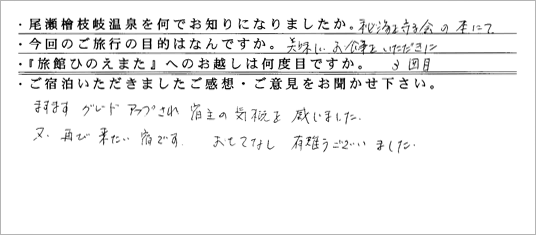 ・尾瀬檜枝岐温泉を何でお知りになりましたか。秘湯を守る会の本にて
・今回のご旅行の目的はなんですか。美味しいお食事をいただきに
・『旅館ひのえまた』へのお越しは何度目ですか。 3回目
・ご宿泊いただきましたご感想・ご意見をお聞かせ下さい。
ますます グレードアップされ 宿主の気概を感じました。
又、再び来たい宿です。 おもてなし 有難うございました。